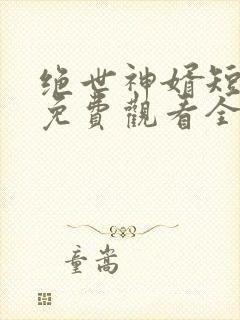 绝世神婿短
免費觀看全
童嵩